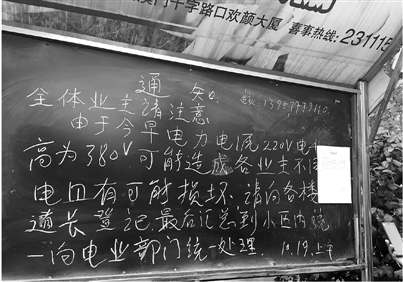 十字路口欢颜大厦 喜事热线:231115
通 知
全体业主请注意
由于今早电力电流220V电
高为380V可能造成各业主不同
电口有可能损坏 请向各楼
道长登记,最后汇总到小区内统
一向电业部门统一处理. 10.19.上午